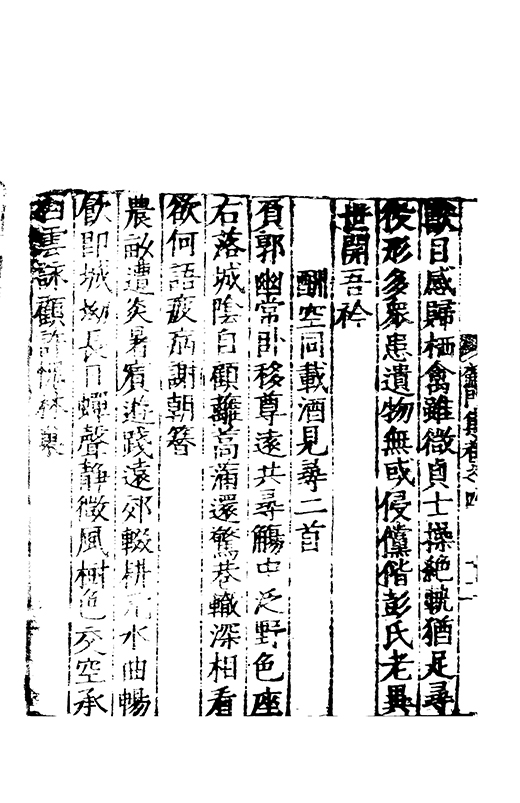 獸目感歸栖禽雖微貞士操絶軌猶足尋
役形多衆患遺物無或侵儻偕彭氏老異
世開吾衿
酬空同載酒見尋二首
負郭幽常卧移尊遠共尋觴中泛野色座
右落城陰自顧離蒿滿還驚巷轍深相看
欲何語疲病謝朝簪
農畝遭炎暑賓遊踐遠郊輟耕水曲暢
飲即城坳長日蟬聲静微風樹色交空承
白雲詠顧許集